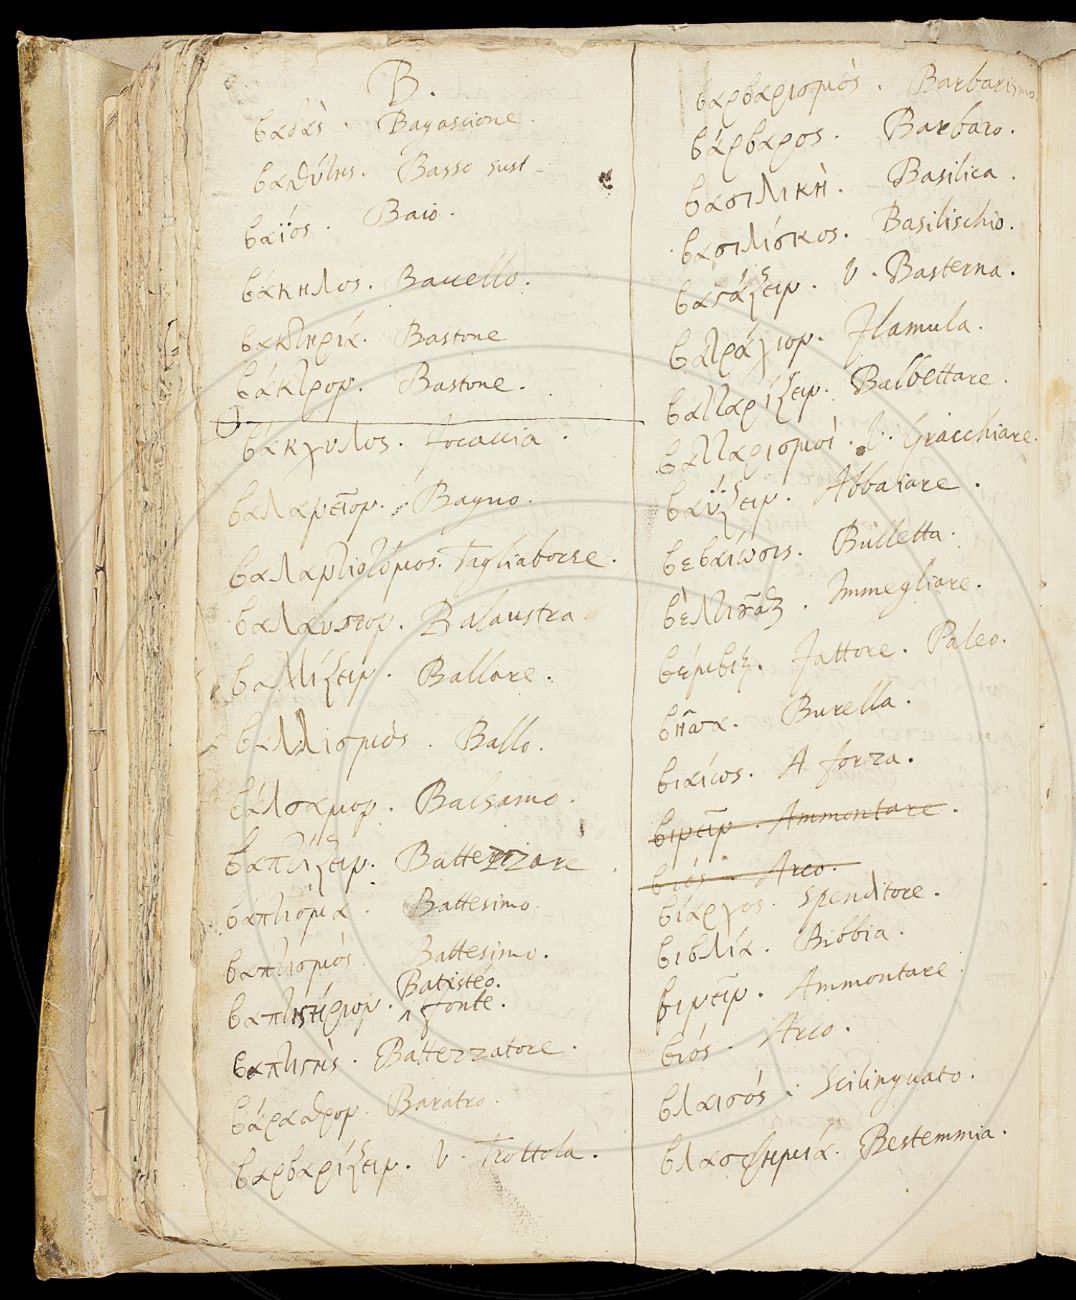 B.
βαδὰς. Bagascione.
βαθύτης. Basso sust.
βαϊός. Baio.
βάκηλος. Bacello.
βακτηρία. Bastone
βάκτρον. Bastone.
βάκχυλος. focaccia.
βαλανεῖον. Bagno.
βαλαντιοτόμος. Tagliaborse.
βαλαύστιον. Balaustra
βαλλίζειν. Ballare.
βαλλισμὸς. Ballo.
βάλσαμον. Balsamo.
βαπτίζειν. Battezzare.
βάπτισμα. Battesimo.
βαπτισμός. Battesimo.
Batisteo.
βαπτιστήριον. fonte.
βαπτιστὴς. Battezzatore.
βάραθρον. Baratro.
βαρβαρίζειν. V. Trottola.
βαρβαρισμὸς. Barbarismo.
βάρβαρος. Barbaro.
βασιλικὴ. Basilica.
βασιλίσκος. Basilischio.
βαστάζειν. V. Basterna.
βατράχιον. Flamula.
βατταρίζειν. Balbettare.
βατταρισμοί. V. Gracchiare.
βαΰζειν. Abbaiare.
βεβαίωσις. Bulletta.
Immegliare.
βέμβιξ. Fattore. Paleo.
βῆσσα. Burella.
βιαίως. A forza.
βινεῖν. Ammontare.
βιός. Arco.
βίαρχος. Spenditore.
βιβλία. Bibbia.
βινεῖν. Ammontare.
βιός. Arco.
βλαισός. Scilinguato.
βλασφημία. Bestemmia.